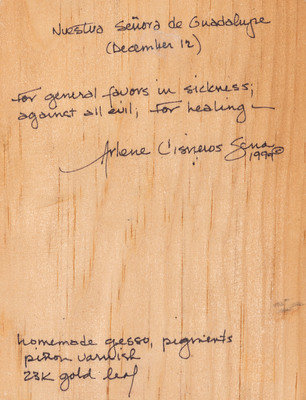 Nuestra Señora de Guadalupe
(December 12)
For general favors in sickness;
against all evil; for healing —
Arlene Cisneros Sena
1994©
homemade gesso, pigments
piñon varnish
23K gold leaf